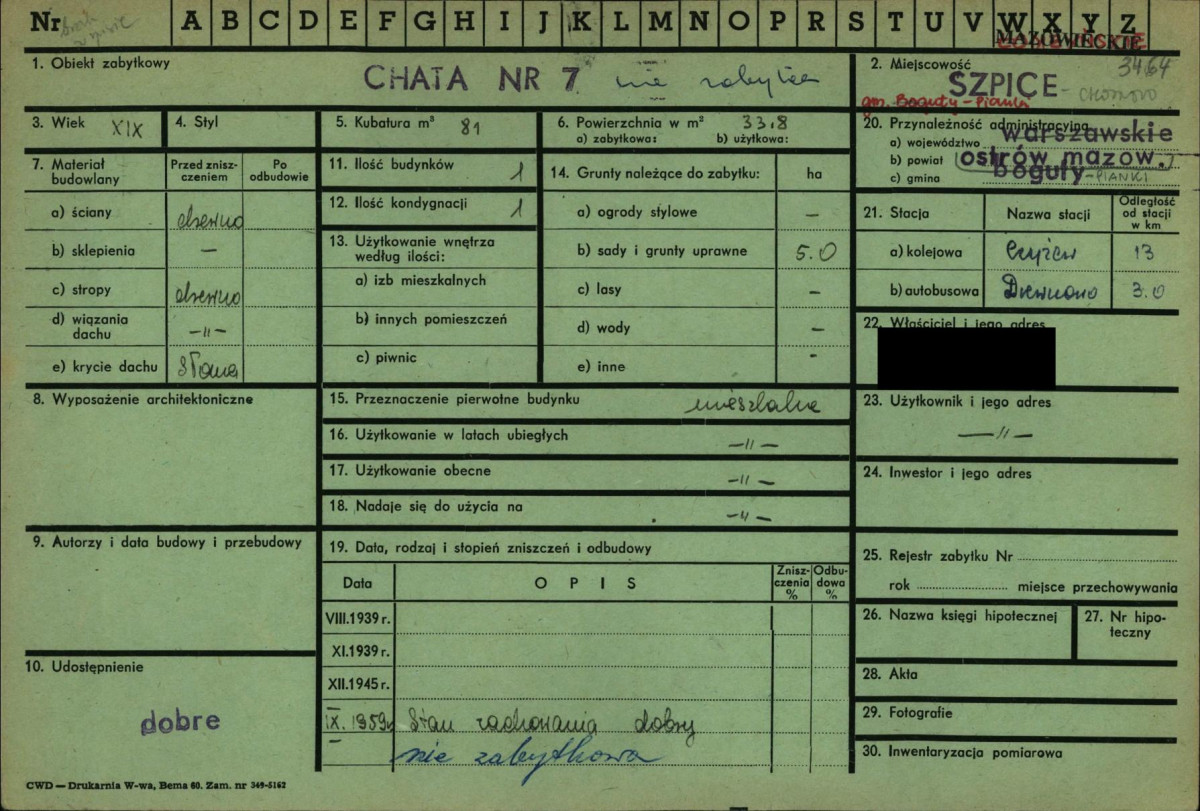 Nr A B C D E F G H I J K L M N O P R S T U V W X Y Z
MAZOWIECKIE
1. Obiekt zabytkowy
CHATA NR 7 nie zabytek
2. Miejscowość 3464
SZPICE - CHOJNOWO
gm. Boguty-Pianki
3. Wiek XIX
4. Styl
5. Kubatura m³ 81
6. Powierzchnia w m² 33,8
a) zabytkowa: b) użytkowa:
7. Materiał budowlany
Przed zniszczeniem
Po odbudowie
a) ściany drewno
b) sklepienia —
c) stropy drewno
d) wiązania dachu —„—
e) krycie dachu słoma
8. Wyposażenie architektoniczne
9. Autorzy i data budowy i przebudowy
10. Udostępnienie
dobre
11. Ilość budynków 1
12. Ilość kondygnacji 1
13. Użytkowanie wnętrza według ilości:
a) izb mieszkalnych
b) innych pomieszczeń
c) piwnic
14. Grunty należące do zabytku: ha
a) ogrody stylowe —
b) sady i grunty uprawne 5.0
c) lasy —
d) wody —
e) inne
15. Przeznaczenie pierwotne budynku mieszkalne
16. Użytkowanie w latach ubiegłych —„—
17. Użytkowanie obecne —„—
18. Nadaje się do użycia na —„—
19. Data, rodzaj i stopień zniszczeń i odbudowy
Data OPIS Zniszczenia % Odbudowa %
VIII.1939 r.
XI.1939 r.
XII.1945 r.
IX. 1959r Stan zachowania dobry
nie zabytkowa
20. Przynależność administracyjna
a) województwo warszawskie
b) powiat ostrów mazow.
c) gmina boguty-PIANKI
21. Stacja Nazwa stacji Odległość od stacji w km
a) kolejowa Czyżew 13
b) autobusowa Drewnowo 3.0
22. Właściciel i jego adres
23. Użytkownik i jego adres
—„—
24. Inwestor i jego adres
25. Rejestr zabytku Nr
rok miejsce przechowywania
26. Nazwa księgi hipotecznej
27. Nr hipoteczny
28. Akta
29. Fotografie
30. Inwentaryzacja pomiarowa
CWD — Drukarnia W-wa, Bema 60. Zam. nr 349-5162